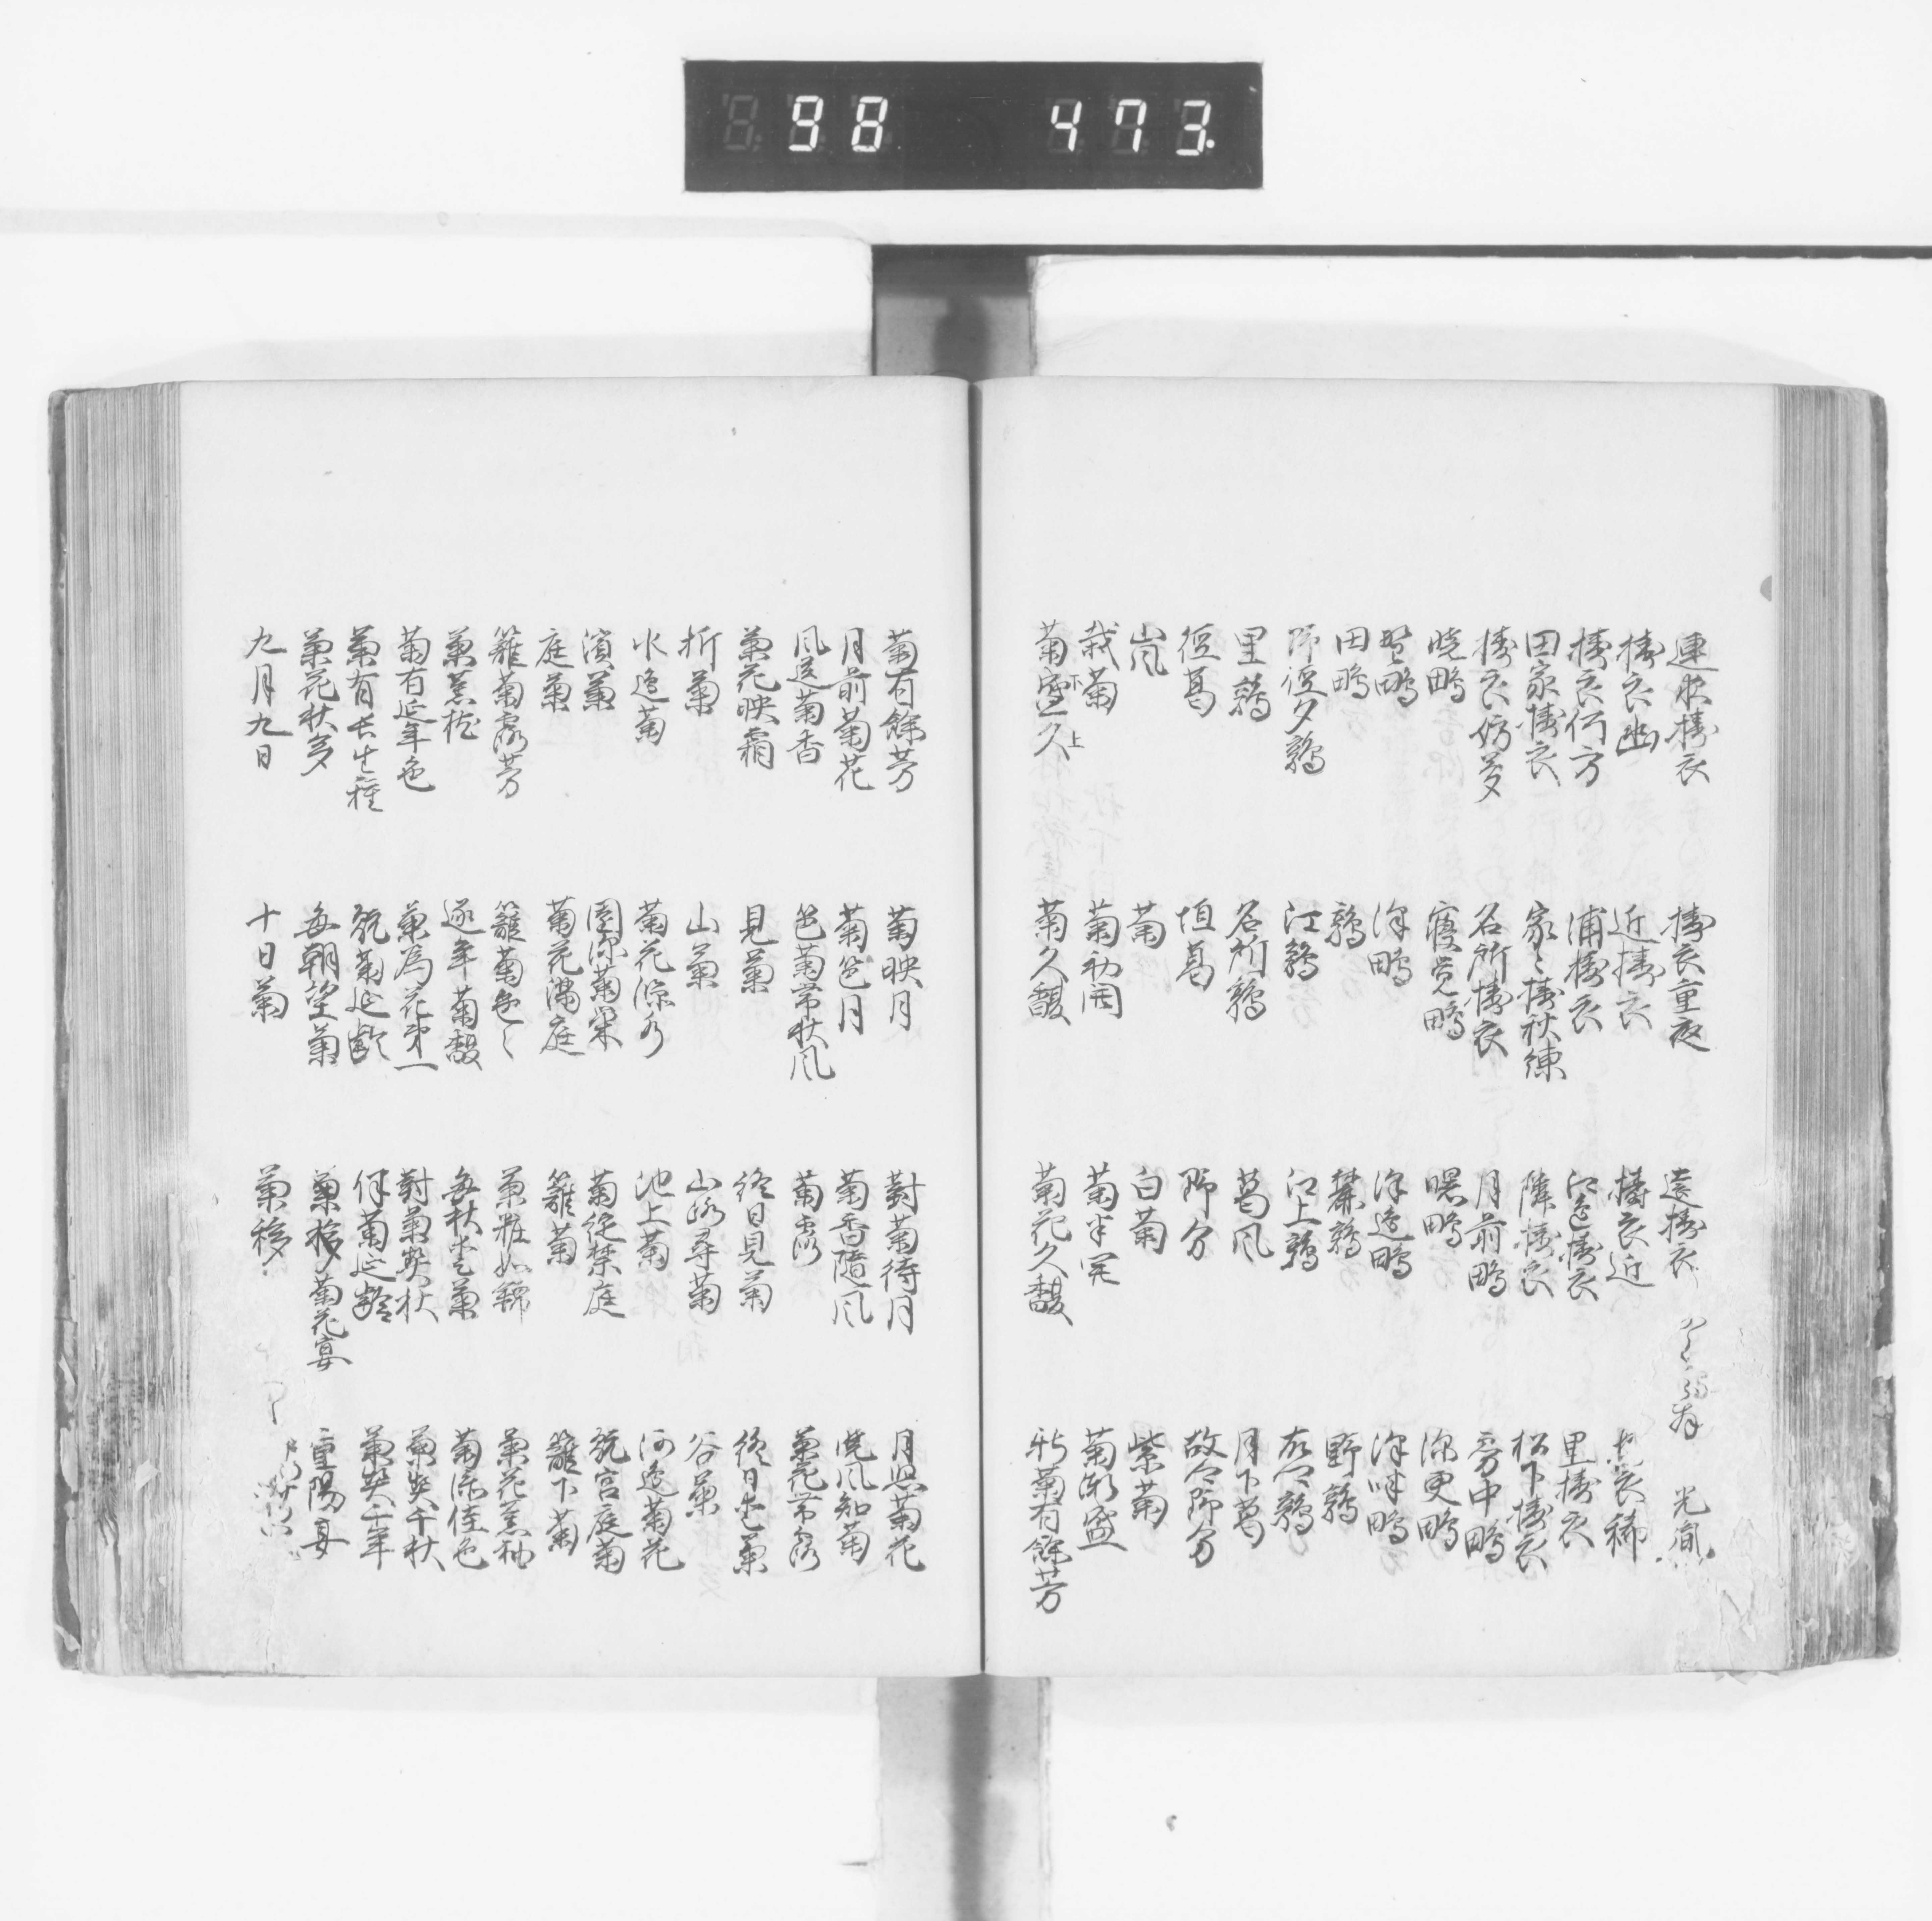 98 473
連夜擣衣
擣衣幽
擣衣何方
田家擣衣
擣衣妨夢
暁鴫
暮鴫
田鴫
野径夕鶉
里鶉
径葛
嵐
栽菊
菊盛久
擣衣重夜
近擣衣
浦擣衣
家々擣秋練
名所擣衣
寝覚鴫
沢鴫
鶉
江鶉
名所鶉
垣葛
菊
菊初開
菊久馥
遠擣衣
擣衣近
江辺擣衣
隣擣衣
月前鴫
曙鴫
沢辺鴫
麓鶉
江上鶉
葛風
野分
白菊
菊半開
菊花久馥
擣衣稀
里擣衣
松下擣衣
雰中鴫
深更鴫
沢畔鴫
野鶉
月下葛
故郷野分
紫菊
菊漸盛
新菊有餘芳
菊有餘芳
月前菊花
風送菊香
菊花映霜
折菊
水辺菊
濱菊
庭菊
籬菊露芳
菊薫枕
菊有延年色
菊有長生種
菊花秋多
九月九日
菊映月
菊色月
籬菊帯秋風
見菊
山菊
菊花涼水
園深菊栄
菊花満庭
籬菊色々
逐年菊馥
菊為花第一
翫菊延齢
毎朝望菊
十日菊
對菊待月
菊香随風
菊露
終日見菊
山路尋菊
池上菊
菊綻禁庭
籬菊
菊粧如錦
毎秋愛菊
對菊契秋
侍菊延齢
菊移 菊花宴
菊移
月照菊花
暁風知菊
菊花帯露
終日愛菊
谷菊
河辺菊花
翫宮庭菊
籬下菊
菊花薫袖
菊添佳色
菊契千秋
菊契千年
重陽宴